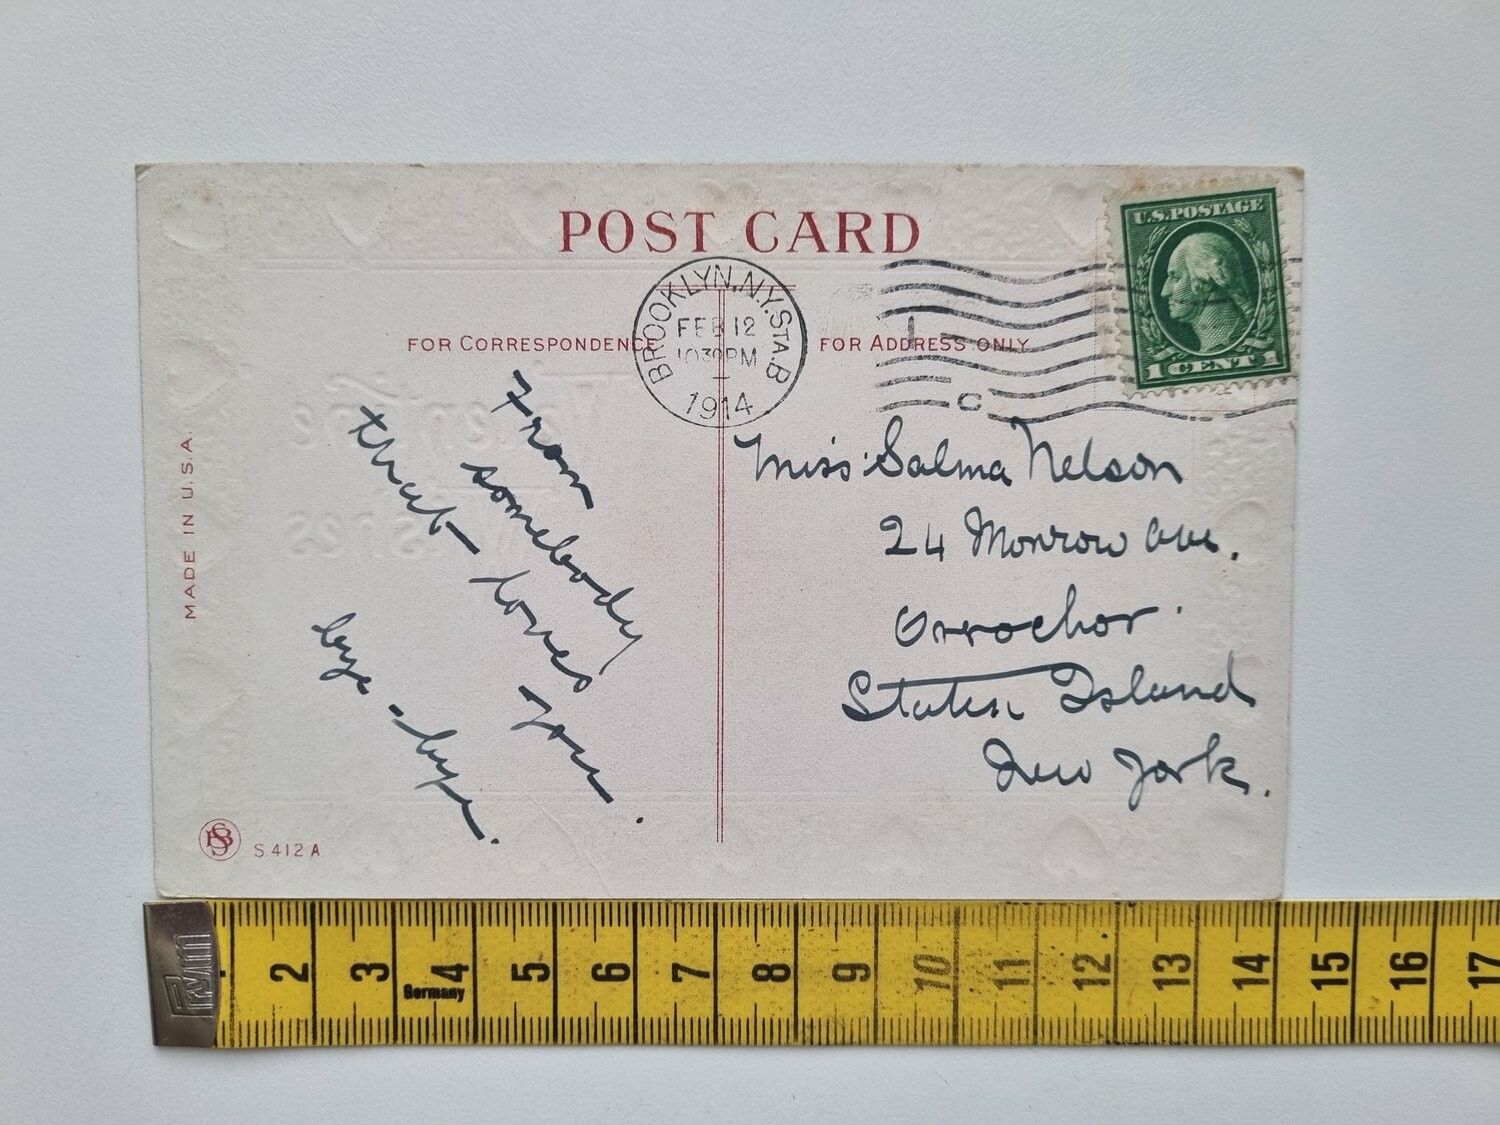 POST CARD
U.S.POSTAGE
1 CENT 1
BROOKLYN, N.Y. STA. B
FEB 12
10 30 PM
1914
C
FOR CORRESPONDENCE
FOR ADDRESS ONLY
From
somebody
that loves you.
bye-bye.
Miss Salma Nelson
24 Monrow Ave.
Orrochor
Staten Island
New York.
MADE IN U.S.A.
S. 412 A
Prym
2 3 4 5 6 7 8 9 10 11 12 13 14 15 16 17
Germany